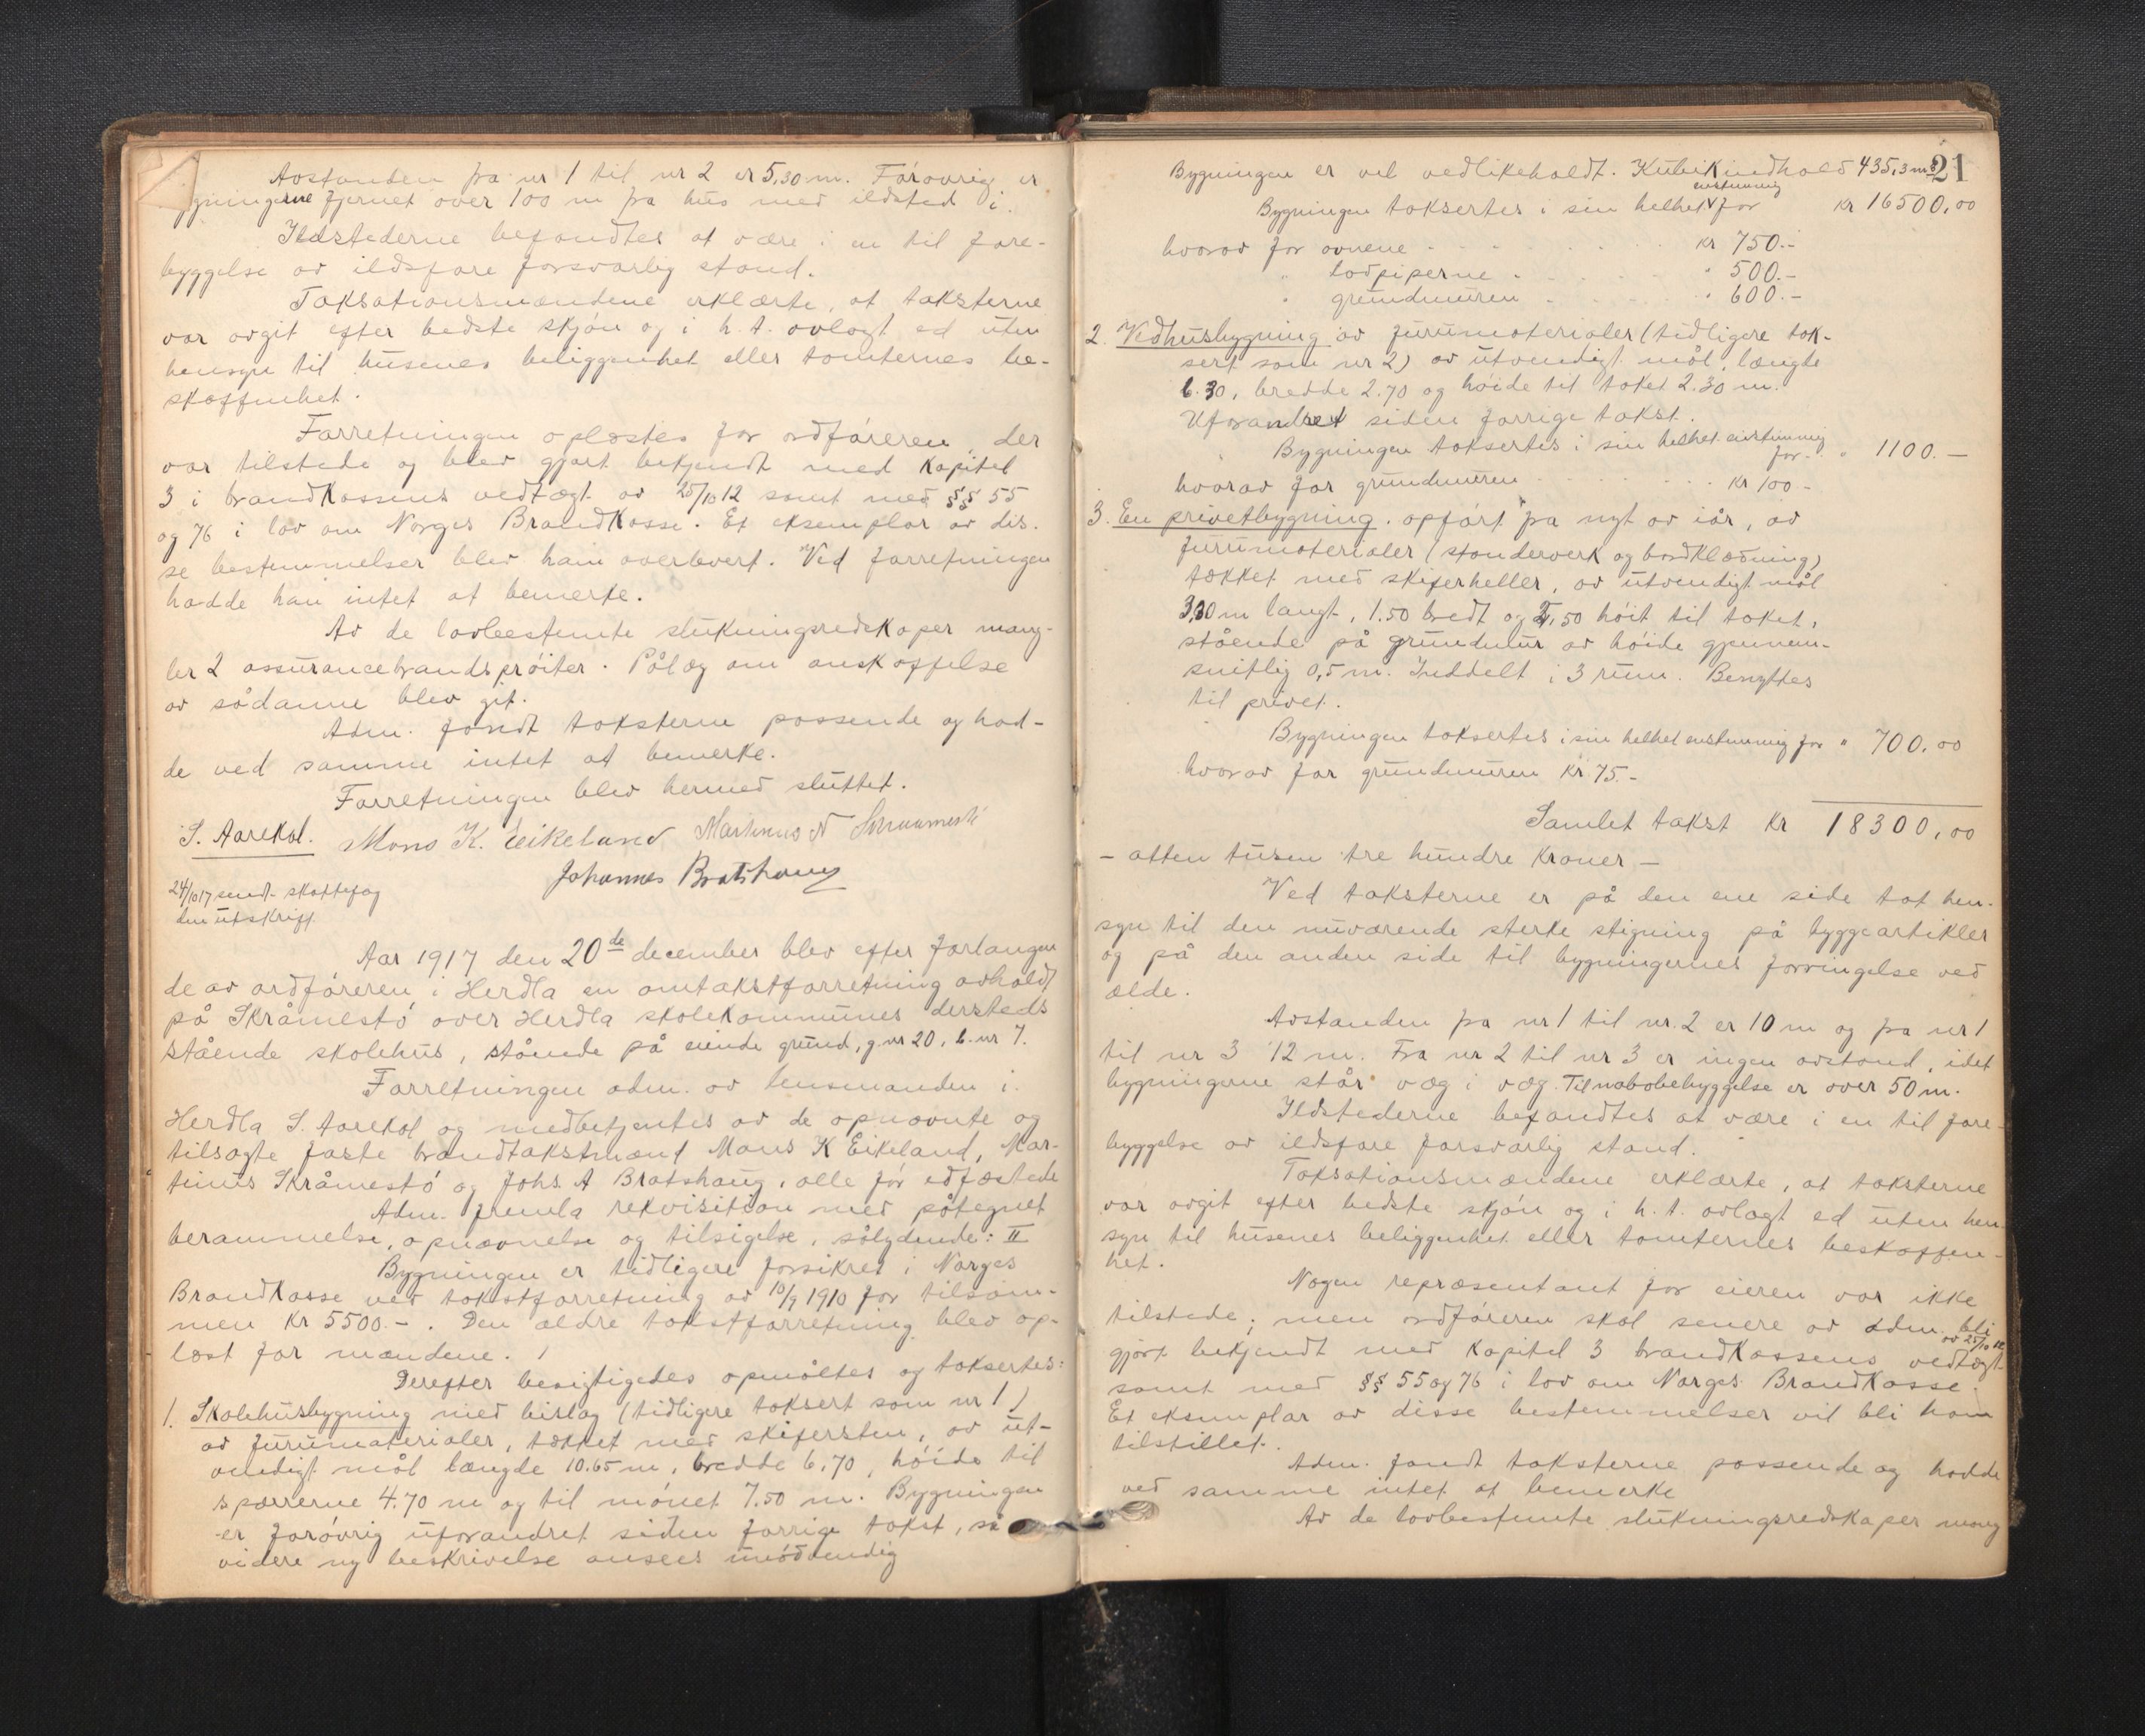 Avstanden fra nr 1 til nr 2 er 5,30 m. Forøvrig er
bygningerne fjernet over 100 m fra hus med ildsted i.
Ildstederne befandtes at være i en til fore-
byggelse av ildsfare forsvarlig stand.
Taksationsmændene erklærte, at taksterne
var avgit efter bedste skjøn og i h. t. avlagt ed uten
hensyn til husenes beliggenhet eller tomternes be-
skaffenhet.
Forretningen oplæstes for ordføreren, der
var tilstede og blev gjort bekjendt med kapitel
3 i brandkassens vedtægt av 25/10 12 samt med §§ 55
og 76 i lov om Norges Brandkasse. Et eksemplar av dis-
se bestemmelser blev ham overlevert. Ved forretningen
hadde han intet at bemerke.
Av de lovbestemte slukningsredskaper mang-
ler 2 assurancebrandsprøiter. Pålæg om anskaffelse
av sådanne blev git.
Adm. fandt taksterne passende og had-
de ved samme intet at bemerke.
Forretningen blev hermed sluttet.
S. Aarekol. Mons K. Eikeland Martinus N Skraamestø
Johannes Bratshaug
24/10 17 sendt skattefog
den utskrift
Aar 1917 den 20de december blev efter forlangen
de av ordføreren i Herdla en omtakstforretning avholdt
på Skråmestø over Herdla skolekommunes dersteds
stående skolehus, stående på eiende grund, g. nr 20, b. nr 7.
Forretningen adm. av lensmanden i
Herdla S. Aarekol og medbetjentes av de opnævnte og
tilsagte faste brandtakstmænd Mons K Eikeland, Mar-
tinus Skråmestø og Johs. A Bratshaug, alle før edfæstede
Adm. fremla rekvisition med påtegnet
berammelse, opnævnelse og tilsigelse, sålydende: II
Bygningen er tidligere forsikret i Norges
Brandkasse ved takstforretning av 10/9 1910 for tilsam-
men kr 5500.-. Den ældre takstforretning blev op-
læst for mændene.
Derefter besigtigedes opmåltes og taksertes:
1. Skolehusbygning med bislag (tidligere taksert som nr 1)
av furumaterialer, tækket med skifersten, av ut-
vendigt mål længde 10.65 m, bredde 6,70, høide til
sparrerne 4.70 m og til mønet 7.50 m. Bygningen
er forøvrig uforandret siden forrige takst, så
videre ny beskrivelse ansees unødvendig
21
Bygningen er vel vedlikeholdt. Kubikindhold 435,3 m3
Bygningen taksertes i sin helhet enstemmig for kr 16500,00
hvorav for ovnene kr 750.-
" lodpiperne " 500.-
" grundmuren " 600.-
2. Vedhusbygning av furumaterialer (tidligere tak-
sert som nr 2) av utvendigt mål, længde
6.30, bredde 2.70 og høide til taket 2.30 m.
Uforandret siden forrige takst.
Bygningen taksertes i sin helhet enstemmig
for " 1100.-
hvorav for grundmuren kr 100.-
3. En privetbygning, opført på nyt av iår, av
furumaterialer (standerverk og bordklædning)
tækket med skiferheller, av utvendigt mål
3,30 m langt, 1.50 bredt og 2,50 høit til taket,
stående på grundmur av høide gjennem-
snitlig 0,5 m. Inddelt i 3 rum. Benyttes
til privet.
Bygningen taksertes i sin helhet enstemmig for " 700,00
hvorav for grundmuren kr. 75.-
Samlet takst kr 18300,00
- atten tusen tre hundre kroner -
Ved taksterne er på den ene side tat hen-
syn til den nuværende sterke stigning på byggeartikler
og på den anden side til bygningernes forringelse ved
ælde.
Avstanden fra nr 1 til nr. 2 er 10 m og fra nr 1
til nr 3 12 m. Fra nr 2 til nr 3 er ingen avstand, idet
bygningerne står væg i væg. Til nabobebyggelse er over 50 m.
Ildstederne befandtes at være i en til fore-
byggelse av ildsfare forsvarlig stand.
Taksationsmændene erklærte, at taksterne
var avgit efter bedste skjøn og i h. t. avlagt ed uten hen-
syn til husenes beliggenhet eller tomternes beskaffen-
het.
Nogen repræsentant for eieren var ikke
tilstede; men ordføreren skal senere av adm. bli
gjort bekjendt med kapitel 3 brandkassens vedtægt av 25/10 12
samt med §§ 55 og 76 i lov om Norges Brandkasse.
Et eksemplar av disse bestemmelser vil bli ham
tilstillet.
Adm. fandt taksterne passende og hadde
ved samme intet at bemerke
Av de lovbestemte slukningsredskaper mang